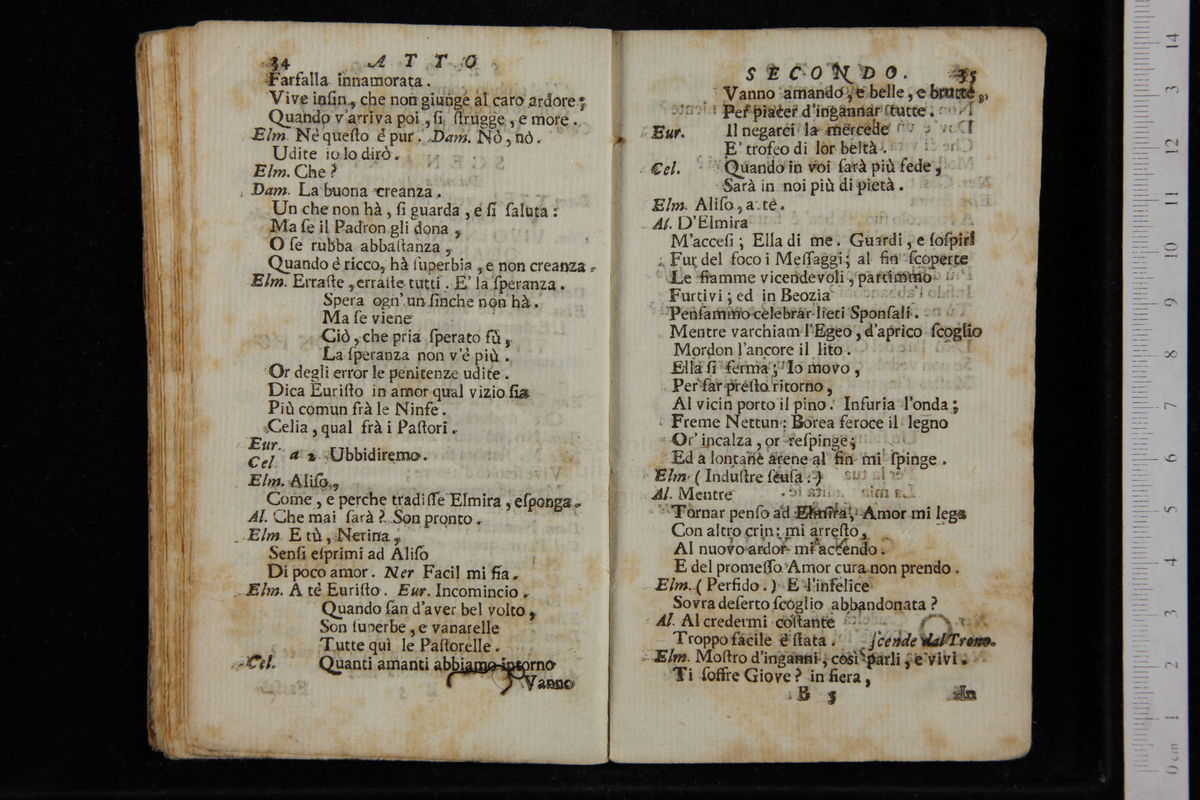 34 ATTO
Farfalla innamorata.
Vive inſin, che non giunge al caro ardore;
Quando v'arriva poi, ſi ſtrugge, e more.
Elm. Nè queſto è pur. Dam. Nò, nò.
Udite io lo dirò.
Elm. Che?
Dam. La buona creanza.
Un che non hà, ſi guarda, e ſi ſaluta:
Ma ſe il Padron gli dona,
O ſe rubba abbaſtanza,
Quando è ricco, hà ſuperbia, e non creanza.
Elm. Erraſte, erraſte tutti. E' la ſperanza.
Spera ogn' un finche non hà.
Ma ſe viene
Ciò, che pria ſperato fù,
La ſperanza non v'è più.
Or degli error le penitenze udite.
Dica Euriſto in amor qual vizio ſia
Più comun frà le Ninfe.
Celia, qual frà i Paſtori.
Eur.
Cel. a 2 Ubbidiremo.
Elm. Aliſo,
Come, e perche tradiſſe Elmira, eſponga.
Al. Che mai ſarà? Son pronto.
Elm. E tù, Nerina,
Senſi eſprimi ad Aliſo
Di poco amor. Ner Facil mi fia.
Elm. A tè Euriſto. Eur. Incomincio.
Quando ſan d'aver bel volto,
Son ſuperbe, e vanarelle
Tutte quì le Paſtorelle.
Cel. Quanti amanti abbiamo intorno
Vanno
SECONDO. 35
Vanno amando, e belle, e brutte,
Per piacer d'ingannar tutte.
Eur. Il negarci la mercede
E' trofeo di lor beltà.
Cel. Quando in voi ſarà più fede,
Sarà in noi più di pietà.
Elm. Aliſo, a tè.
Al. D'Elmira
M'acceſi; Ella di me. Guardi, e ſoſpiri
Fur del foco i Meſſaggi; al fin ſcoperte
Le fiamme vicendevoli, partimmo
Furtivi; ed in Beozia
Penſammo celebrar lieti Sponſali.
Mentre varchiam l'Egeo, d'aprico ſcoglio
Mordon l'ancore il lito.
Ella ſi ferma; Io movo,
Per far preſto ritorno,
Al vicin porto il pino. Infuria l'onda;
Freme Nettun: Borea feroce il legno
Or' incalza, or reſpinge;
Ed a lontane arene al fin mi ſpinge.
Elm (Induſtre ſcuſa.)
Al. Mentre
Tornar penſo ad Elmira, Amor mi lega
Con altro crin: mi arreſto,
Al nuovo ardor mi accendo.
E del promeſſo Amor cura non prendo.
Elm. (Perfido.) E l'infelice
Sovra deſerto ſcoglio abbandonata?
Al. Al credermi coſtante
Troppo facile è ſtata. ſcende dal Trono.
Elm. Moſtro d'inganni, così parli, e vivi.
Ti ſoffre Giove? in fiera,
B 3 In